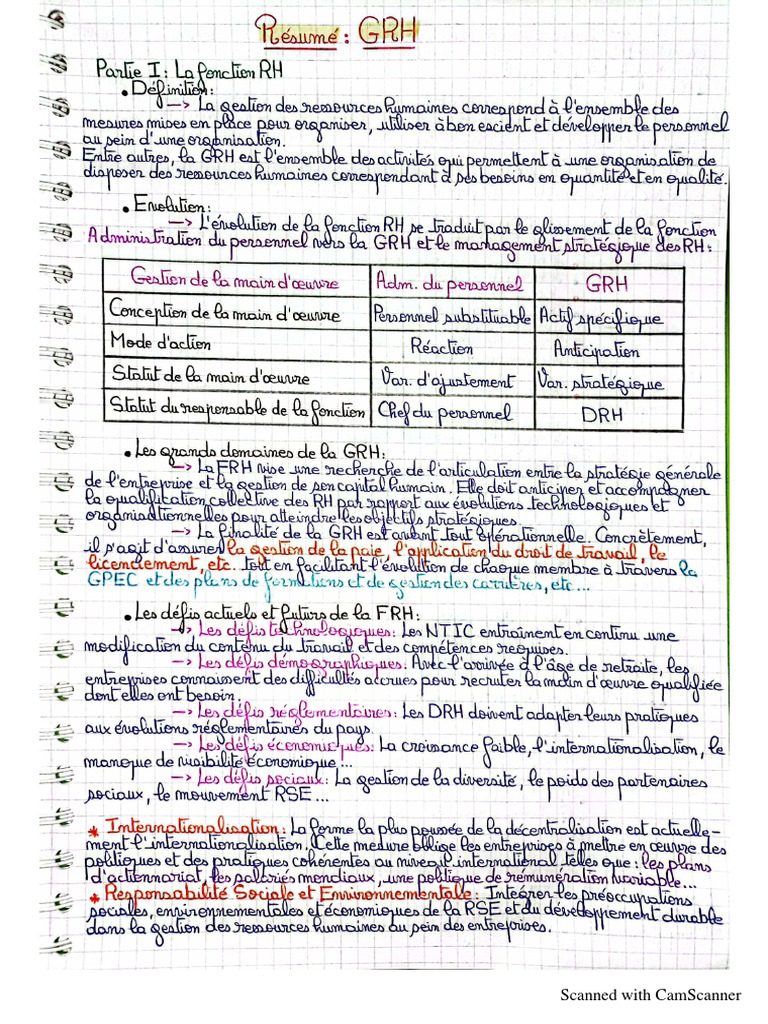 Résumé : GRH
Partie I : La fonction RH
• Définition :
—> La gestion des ressources humaines correspond à l'ensemble des
mesures mises en place pour organiser, utiliser à bon escient et développer le personnel
au sein d'une organisation.
Entre autres, la GRH est l'ensemble des activités qui permettent à une organisation de
disposer des ressources humaines correspondant à ses besoins en quantité et en qualité.
• Evolution :
—> L'évolution de la fonction RH se traduit par le glissement de la fonction
Administration du personnel vers la GRH et le management stratégique des RH :
Gestion de la main d'œuvre Adm. du personnel GRH
Conception de la main d'œuvre Personnel substituable Actif spécifique
Mode d'action Réaction Anticipation
Statut de la main d'œuvre Var. d'ajustement Var. stratégique
Statut du responsable de la fonction Chef du personnel DRH
• Les grands domaines de la GRH :
—> La FRH vise une recherche de l'articulation entre la stratégie générale
de l'entreprise et la gestion de son capital humain. Elle doit anticiper et accompagner
la qualification collective des RH par rapport aux évolutions technologiques et
organisationnelles pour atteindre les objectifs stratégiques.
—> La finalité de la GRH est avant tout opérationnelle. Concrètement,
il s'agit d'assurer la gestion de la paie, l'application du droit de travail, le
licenciement, etc. tout en facilitant l'évolution de chaque membre à travers la
GPEC et des plans de formations et de gestion des carrières, etc...
• Les défis actuels et futurs de la FRH :
—> Les défis technologiques : Les NTIC entraînent en continu une
modification du contenu du travail et des compétences requises.
—> Les défis démographiques : Avec l'arrivée à l'âge de retraite, les
entreprises connaissent des difficultés accrues pour recruter la main d'œuvre qualifiée
dont elles ont besoin.
—> Les défis réglementaires : Les DRH doivent adapter leurs pratiques
aux évolutions réglementaires du pays.
—> Les défis économiques : La croissance faible, l'internationalisation, le
manque de visibilité économique...
—> Les défis sociaux : La gestion de la diversité, le poids des partenaires
sociaux, le mouvement RSE...
* Internationalisation : La forme la plus poussée de la décentralisation est actuelle-
ment l'internationalisation. Cette mesure oblige les entreprises à mettre en œuvre des
politiques et des pratiques cohérentes au niveau international telles que : les plans
d'actionnariat, les salariés mondiaux, une politique de rémunération variable...
* Responsabilité Sociale et Environnementale : Intégrer les préoccupations
sociales, environnementales et économiques de la RSE et du développement durable
dans la gestion des ressources humaines au sein des entreprises.
Scanned with CamScanner